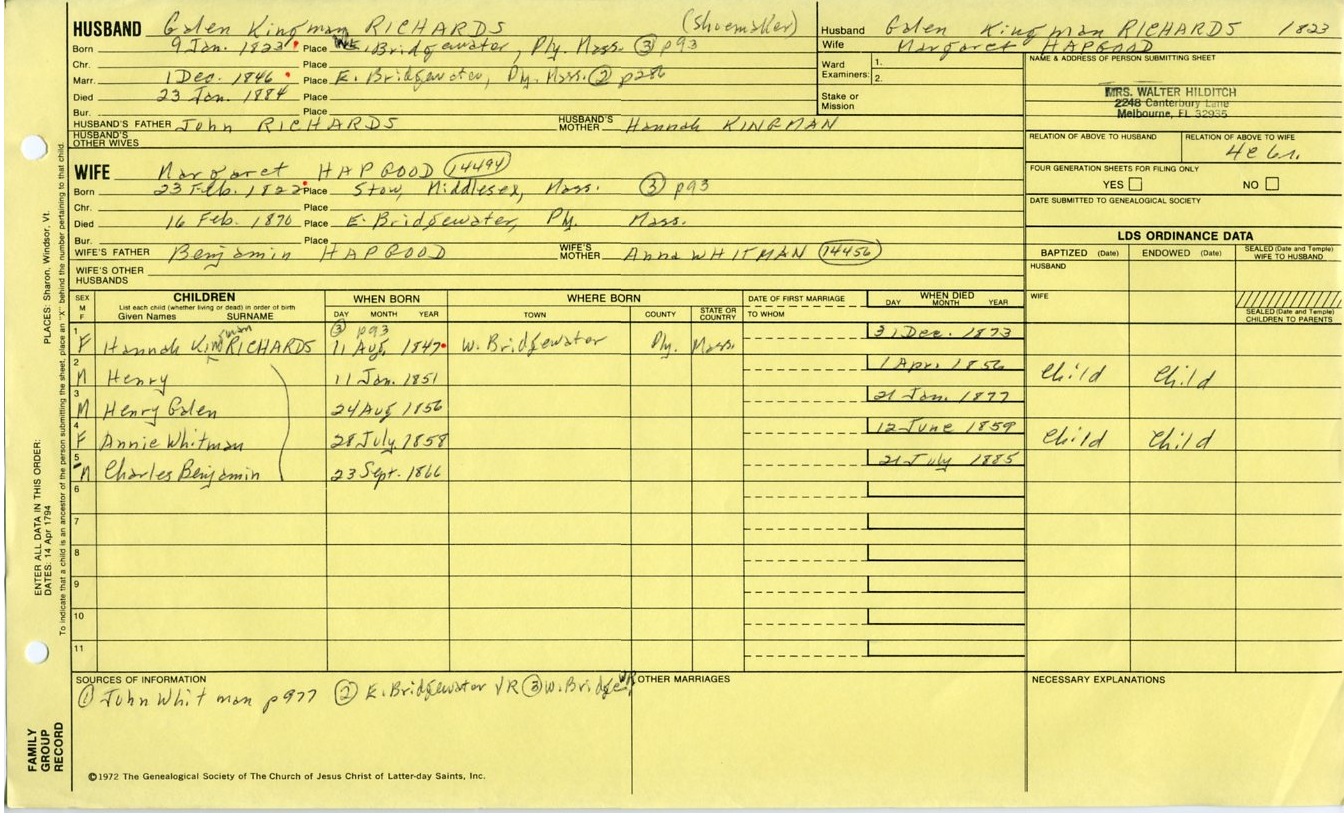 HUSBAND Galen Kingman RICHARDS (Shoemaker)
Born 9 Jan. 1823 Place W. Bridgewater, Ply. Mass. ③ p93
Chr. Place
Marr. 1 Dec. 1846 Place E. Bridgewater, Ply. Mass. ② p286
Died 23 Jan. 1884 Place
Bur. Place
HUSBAND'S FATHER John RICHARDS HUSBAND'S MOTHER Hannah KINGMAN
HUSBAND'S OTHER WIVES
Husband Galen Kingman RICHARDS 1823
Wife Margaret HAPGOOD
Ward Examiners: 1.
2.
Stake or Mission
NAME & ADDRESS OF PERSON SUBMITTING SHEET
MRS. WALTER HILDITCH
2248 Canterbury Lane
Melbourne, FL 32935
RELATION OF ABOVE TO HUSBAND RELATION OF ABOVE TO WIFE
FOUR GENERATION SHEETS FOR FILING ONLY
YES NO
DATE SUBMITTED TO GENEALOGICAL SOCIETY
WIFE Margaret HAPGOOD 14494
Born 23 Feb. 1822 Place Stow, Middlesex, Mass. ③ p93
Chr. Place
Died 16 Feb. 1870 Place E. Bridgewater, Ply. Mass.
Bur. Place
WIFE'S FATHER Benjamin HAPGOOD WIFE'S MOTHER Anna WHITMAN 14456
WIFE'S OTHER HUSBANDS
LDS ORDINANCE DATA
BAPTIZED (Date) ENDOWED (Date) SEALED (Date and Temple) WIFE TO HUSBAND
HUSBAND
WIFE
SEALED (Date and Temple) CHILDREN TO PARENTS
SEX M F CHILDREN List each child (whether living or dead) in order of birth Given Names SURNAME WHEN BORN DAY MONTH YEAR WHERE BORN TOWN COUNTY STATE OR COUNTRY DATE OF FIRST MARRIAGE TO WHOM WHEN DIED DAY MONTH YEAR
③ p93
1 F Hannah Kingman RICHARDS 11 Aug. 1847 W. Bridgewater Ply. Mass. 31 Dec. 1873
2 M Henry 11 Jan. 1851 1 Apr. 1856 Child Child
3 M Henry Galen 24 Aug 1856 21 Jan. 1877
4 F Annie Whitman 28 July 1858 12 June 1859 Child Child
5 M Charles Benjamin 23 Sept. 1866 21 July 1885
6
7
8
9
10
11
SOURCES OF INFORMATION
① John Whitman p977 ② E. Bridgewater VR ③ W. Bridge VR
OTHER MARRIAGES
NECESSARY EXPLANATIONS
©1972 The Genealogical Society of The Church of Jesus Christ of Latter-day Saints, Inc.
FAMILY GROUP RECORD
ENTER ALL DATA IN THIS ORDER:
DATES: 14 Apr 1794
PLACES: Sharon, Windsor, Vt.
To indicate that a child is an ancestor of the person submitting the sheet, place an "X" behind the number pertaining to that child.